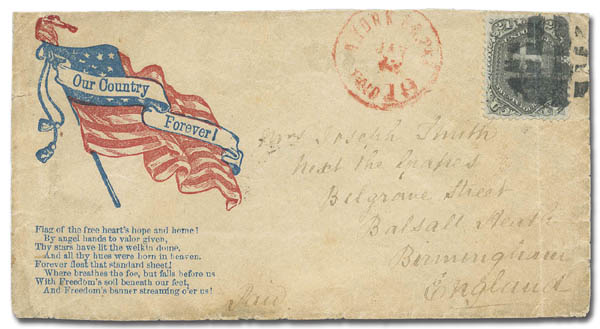 Our Country
Forever!
Flag of the free heart's hope and home!
By angel hands to valor given,
Thy stars have lit the welkin dome,
And all thy hues were born in heaven.
Forever float that standard sheet!
Where breathes the foe, but falls before us
With Freedom's soil beneath our feet,
And Freedom's banner streaming o'er us!
Joseph Smith
Next the Grapes
Belgrave Street
Balsall Heath
Birmingham
England
Paid